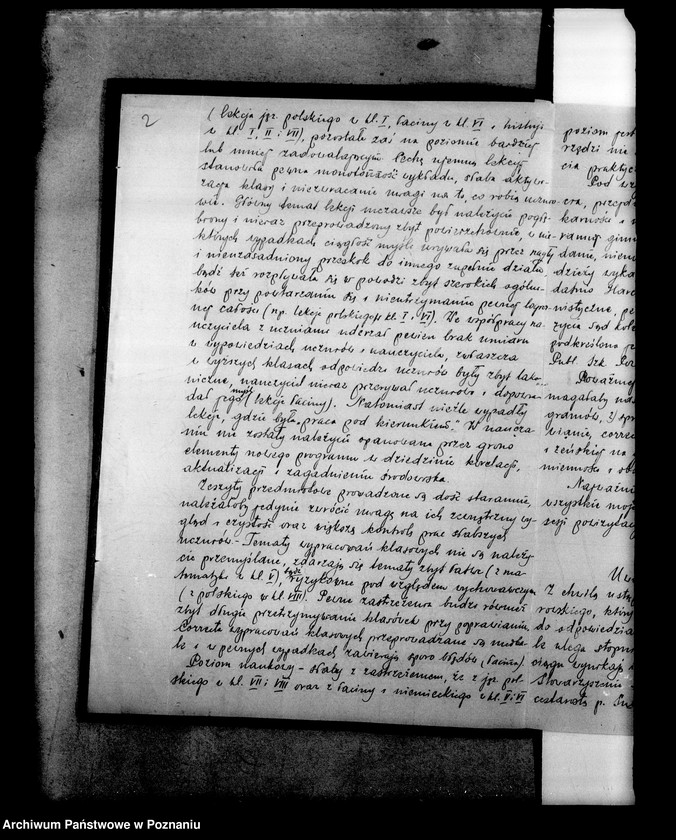 2
(lekcja jęz. polskiego w kl. I, łaciny w kl. VI i historji
w kl. I, II i VII), pozostałe zaś na poziomie bardziej
lub mniej zadowalającym. Cechę ujemną lekcyj
stanowiła pewna monotonność wykładu, słaba aktywi-
zacja klasy i niezwracanie uwagi na to, co robią uczno-
wie. Główny temat lekcji niezawsze był należycie pogłę-
biony i nieraz przeprowadzony zbyt powierzchownie, w nie-
których wypadkach ciągłość myśli urywała się przez nagły
i nieuzasadniony przeskok do innego zupełnie działu,
bądź też rozpływała się w powodzi zbyt szerokich ogólni-
ków przy powtarzaniu się i nieutrzymaniu pewnej
nej całości (np. lekcji polskiego w kl. I i VI). We współpracy na-
uczyciela z uczniami uderzał pewien brak umiaru
w wypowiedziach uczniów i nauczyciela, zwłaszcza
w wyższych klasach odpowiedzi uczniów były zbyt lako-
niczne, nauczyciel nieraz przerywał uczniowi i dopowia-
dał jego myśl (lekcje łaciny). Natomiast nieźle wypadły
lekcje, gdzie była „praca pod kierunkiem." W naucza-
niu nie zostały należycie opanowane przez grono
elementy nowego programu w dziedzinie korelacji,
aktualizacji i zagadnienia środowiska.
Zeszyty przedmiotowe prowadzone są dość starannie,
należałoby jedynie zwrócić uwagę na ich zewnętrzny wy-
gląd i czystość oraz większą kontrolę prac słabszych
uczniów. - Tematy wypracowań klasowych nie są należy-
cie przemyślane, zdarzają się tematy zbyt łatwe (z ma-
tematyki w kl. V), bądź ryzykowne pod względem wychowawczym
(z polskiego w kl. VIII). Pewne zastrzeżenia budzi również
zbyt długie przetrzymywanie klasówek przy poprawianiu.
Correcta wypracowań klasowych przeprowadzane są
le i w pewnych wypadkach zawierają sporo błędów (łacina)
Poziom naukowy - słaby z zastrzeżeniem, że z jęz. pol-
skiego w kl. VII i VIII oraz z łaciny i niemieckiego w kl. V i VI
poziom jest
rzędzi nie
cia praktyc
Pod wz
era, przepr
karności i
ranny gimn
danie, niem
dzieży wyka
datnio Harc
nistyczne, pe
życia są koł
podkreślono
Publ. Szk. Pow
Poważnej
magatały
gramów, 2) spr
wianie, corre
i żeńskiej na
niemości i
Najważni
wszystkim moż
sesji powizytac
Z chwilą
rowskiego, który
do odpowiedzia
le ulega stopni
ciągu wynikają
Stowarzyszenie
cestarostą p.
Archiwum Państwowe w Poznaniu